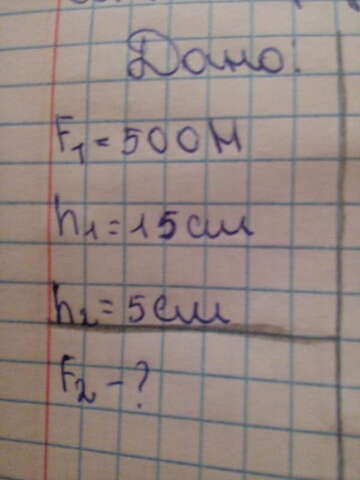 Дано:
F₁ = 500 Н
h₁ = 15 см
h₂ = 5 см
F₂ - ?